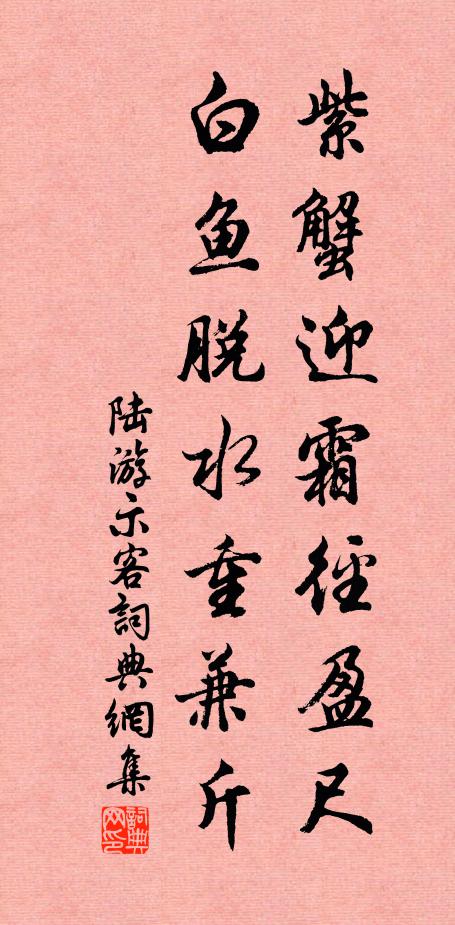 紫蟹迎霜径盈尺
白鱼脱水重兼斤
陆游示客詞典網集
詞典网印